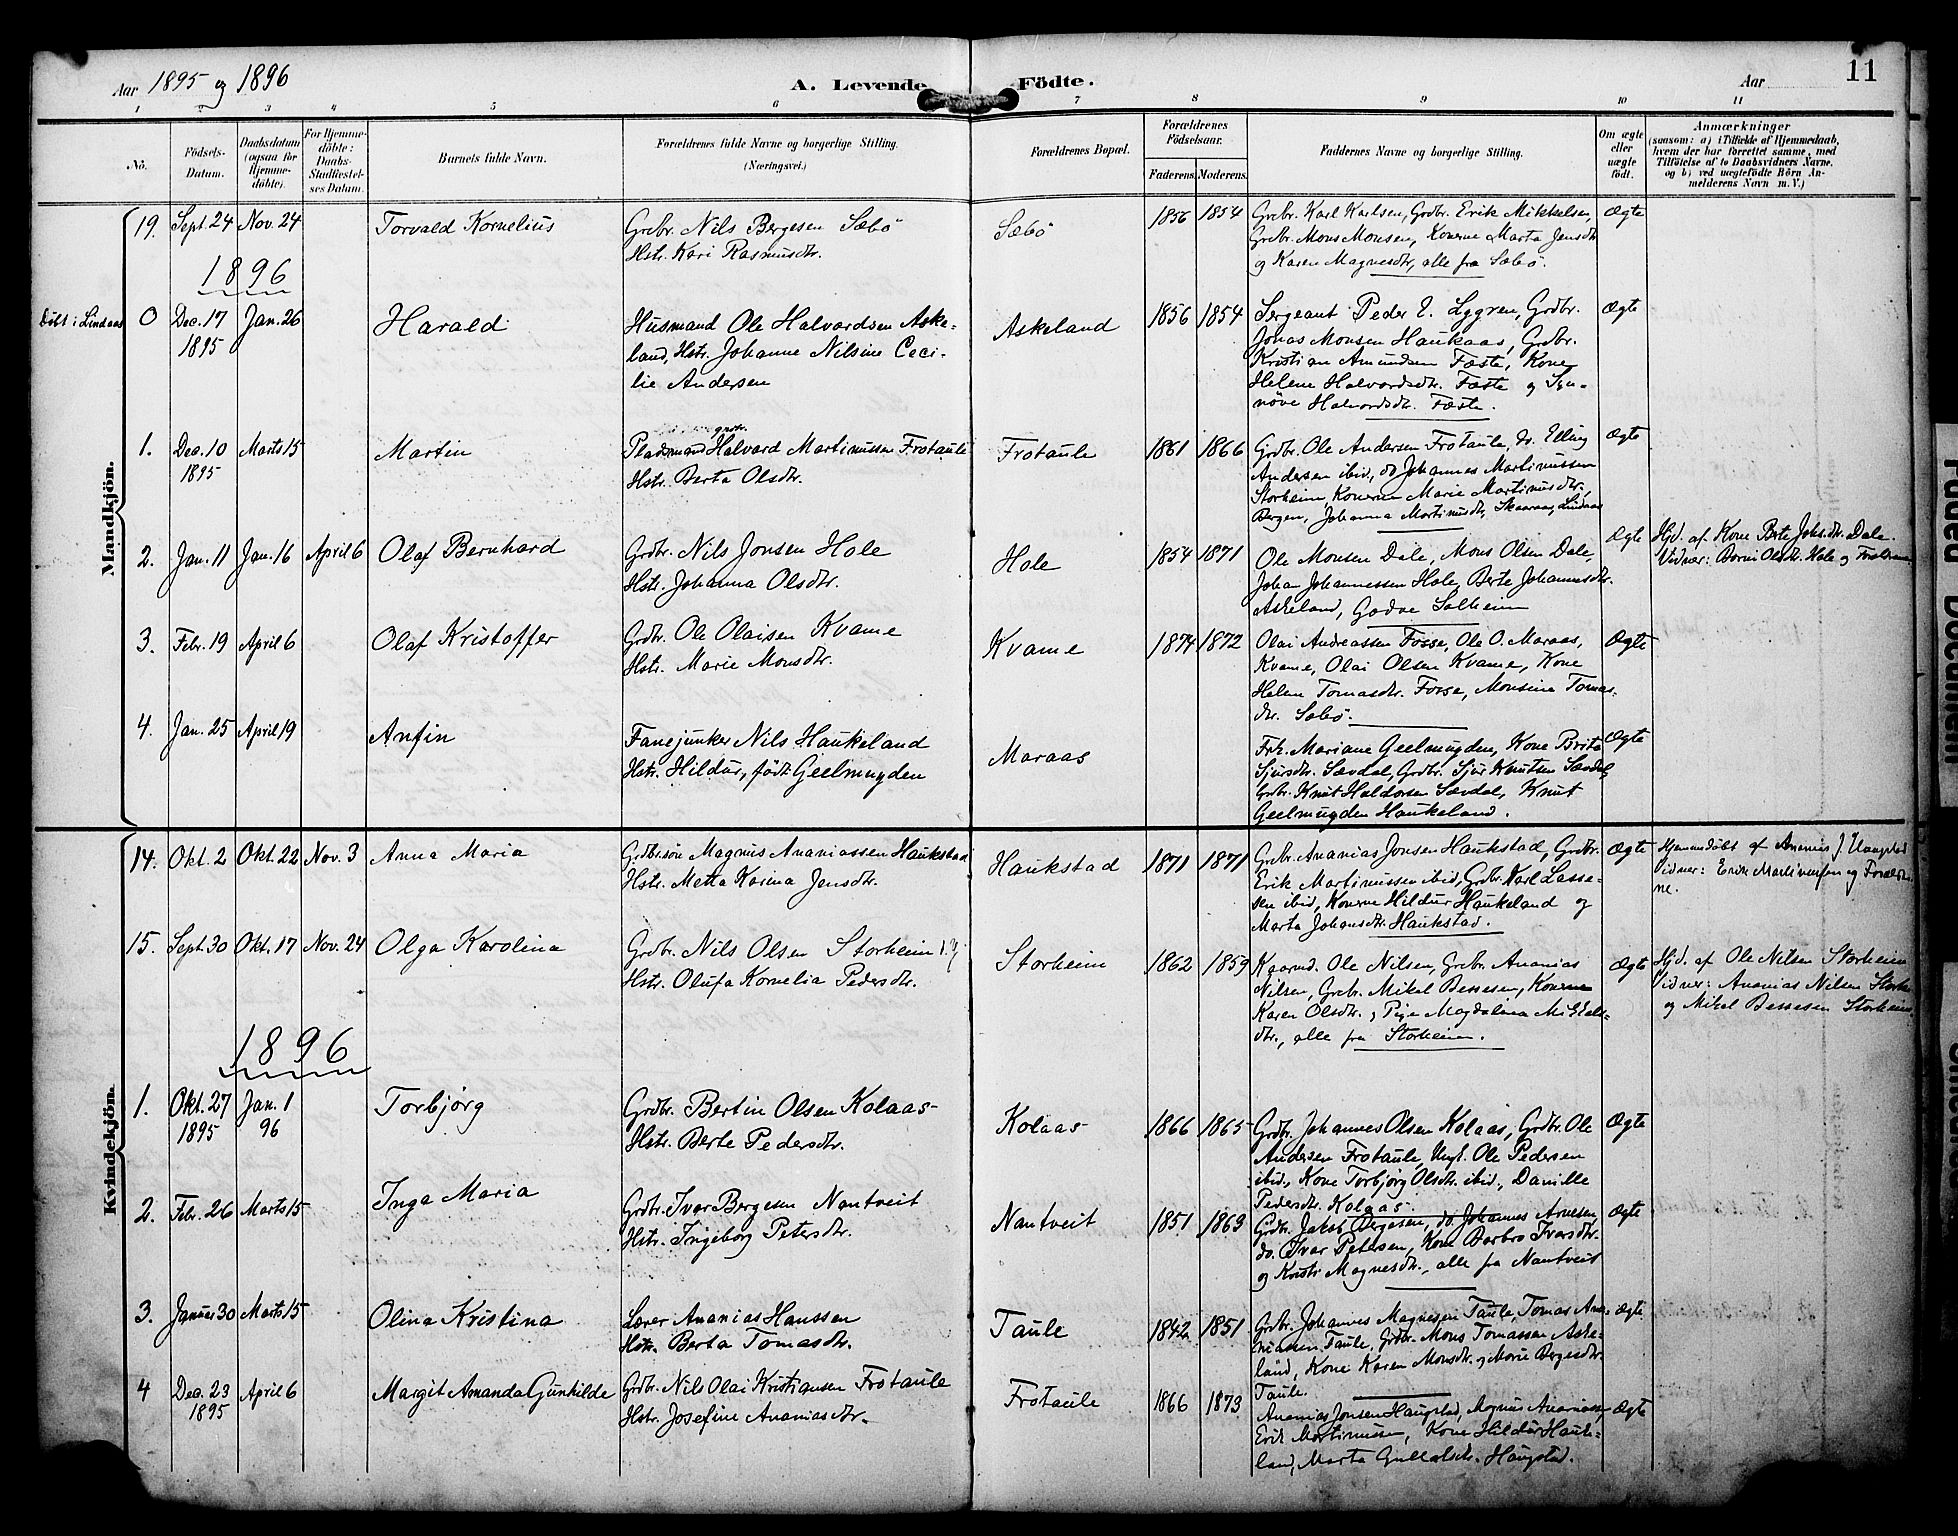 Aar 1895 og 1896
A. Levende Födte.
Aar
11
1 2 3 4 5 6 7 8 9 10 11
Nö.
Födsels-Datum.
Daabsdatum (ogsaa for Hjemme-döbte).
For Hjemme-döbte: Daabs-Stadfæstel-ses Datum.
Barnets fulde Navn.
Forældrenes fulde Navne og borgerlige Stilling. (Næringsvei.)
Forældrenes Bopæl.
Forældrenes Födselsaar.
Faderens. Moderens.
Faddernes Navne og borgerlige Stilling.
Om ægte eller uægte födt.
Anmærkninger
(saasom: a) i Tilfælde af Hjemmedaab, hvem der har forrettet samme, med Tilföielse af to Daabsvidners Navne, og b) ved uægtefödte Börn An-melderens Navn m. V.)
Mandkjön.
19. Sept. 24 Nov. 24 Torvald Kornelius
Grdbr. Nils Bergesen Sæbö
Hstr. Kari Rasmusdtr.
Sæbö 1856 1854
Grdbr. Karl Karlsen, Grdbr. Erik Mikkelsen,
Grdbr. Mons Monsen, Konerne Marta Jensdtr.
og Karen Magnesdtr, alle fra Sæbö.
Ægte
1896
Döbt i Lindaas 0 Dec. 17 1895 Jan. 26 Harald
Husmand Ole Halvardsen Aske-
land, Hstr. Johanne Nilsine Ceci-
lie Andersen
Askeland 1856 1854
Sergeant Peder E. Lygren, Grdbr.
Jonas Monsen Haukaas, Grdbr.
Kristian Amundsen Fæste, Kone
Helene Halvordsdtr. Fæste og Syn-
növe Halvordsdtr. Fæste.
Ægte
1. Dec. 10 1895 Marts 15 Martin
Pladsmand Halvard Martinussen Frotaule
Hstr. Berta Olsdtr.
Frotaule 1861 1866
Grdbr. Ole Andersen Frotaule, do. Elling
Andersen ibid, do Johannes Martinussen
Storheim, Konerne Marie Martinusdtr,
Bergen, Johanna Martinusdtr, Skaaraas, Lindaas
Ægte
2. Jan. 11 Jan. 16 April 6 Olaf Bernhard
Grdbr. Nils Jonsen Hole
Hstr. Johanna Olsdtr.
Hole 1854 1871
Ole Monsen Dale, Mons Olsen Dale,
Johan Johannessen Hole, Berte Johannesdtr.
Askeland, Gjødve Solheim
Ægte
Hjd. af Kone Berte Johsdtr. Dale.
3. Febr. 19 April 6 Olaf Kristoffer
Grdbr. Ole Olaisen Kvame
Hstr. Marie Monsdtr.
Kvame 1874 1872
Olai Andreassen Fosse, Ole O. Maraas,
Kvame, Olai Olsen Kvame, Kone
Helen Tomasdtr. Fosse, Monsine Tomas-
dtr. Sæbö.
Ægte
4. Jan. 25 April 19 Anfin
Fanejunker Nils Haukeland
Hstr. Hildur, födt Geelmuyden
Maraas
Frk. Mariane Geelmuyden, Kone Brita
Sjursdtr. Sævdal, Grdbr. Sjur Knutsen Sævdal,
Grdbr. Knut Haldorsen Sævdal, Knut
Geelmuyden Haukeland.
Ægte
Kvindekjön.
14. Okt. 2 Okt. 22 Nov. 3 Anna Maria
Grdbrsön Magnus Ananiassen Haukstad
Hstr. Metta Karina Jensdtr.
Haukstad 1871 1871
Grdbr. Ananias Jonsen Haukstad, Grdbr.
Erik Martinussen ibid, Grdbr. Karl Lasse-
sen ibid, Konerne Hildur Haukeland og
Marta Johansdtr. Haukstad.
Ægte
Hjemmedöbt af Ananias J. Haugstad
Vidner: Erik Martinussen og Foræld-
ne.
15. Sept. 30 Okt. 17 Nov. 24 Olga Karolina
Grdbr. Nils Olsen Storheim
Hstr. Olufa Kornelia Pedersdtr.
Storheim 1862 1859
Kaarmd. Ole Nilsen, Grdbr. Ananias
Nilsen, Grdbr. Mikel Bessesen, Konerne
Karen Olsdtr., Pige Magdalina Mikkels-
dtr., alle fra Storheim.
Ægte
Hjd. af Ole Nilsen Storheim
Vidner: Ananias Nilsen Storh.
og Mikel Bessesen Storheim
1896
1. Okt. 27 1895 Jan. 1 96 Torbjørg
Grdbr. Bertin Olsen Kolaas-
Hstr. Berte Pedersdtr.
Kolaas 1866 1865
Grdbr. Johannes Olsen Kolaas, Grdbr. Ole
Andersen Frotaule, Ungk. Ole Pedersen
ibid., Kone Torbjørg Olsdtr. ibid., Danille
Pedersdtr. Kolaas.
Ægte
2. Febr. 26 Marts 15 Inga Maria
Grdbr. Ivar Bergesen Nantveit
Hstr. Ingeborg Petersdtr.
Nantveit 1851 1863
Grdbr. Jakob Bergesen, do. Johannes Arnesen
do. Ivar Petersen, Kone Barbro Ivarsdtr.
og Kristi Magnesdtr., alle fra Nantveit
Ægte
3. Januar 30 Marts 15 Olina Kristina
Lærer Ananias Hanssen
Hstr. Berta Tomasdtr.
Taule 1842 1851
Grdbr. Johannes Magnesen Taule, Tomas Ana-
niassen Taule, Grdbr. Mons Tomassen Aske-
land, Kone Karen Monsdtr. og Marie Bergesdtr.
Taule.
Ægte
4 Dec. 23 1895 April 6 Margit Amanda Gunhilde
Grdbr. Nils Olai Kristiansen Frotaule
Hstr. Josefine Ananiasdtr.
Frotaule 1866 1873
Ananias Jonsen Haugstad, Magnus Ananiassen,
Erik Martinussen, Kone Hildur Hauke-
land, Marta Gullaksdtr. Haugstad.
Ægte